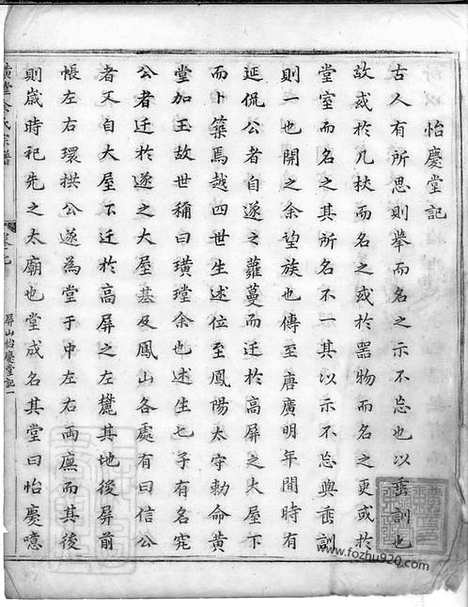 怡慶堂記
古人有所思則舉而名之示不忘也以垂訓也
故或於几杖而名之或於器物而名之更或於
堂室而名之其所名不一其以示不忘與垂訓
則一也開之余望族也傳至唐廣明年間時有
延侃公者自遂之蘿蔓而迁於高屏之大屋下
而卜築焉越四世生述位至鳳陽太守勅命黄
堂加玉故世稱曰璜瑝余也述生七子有名宪
公者迁於遂之大屋基及鳳山各處有曰信公
者又自大屋下迁於高屏之左麓其地後屏前
帳左右環拱公遂為堂于中左右両廡而其後
則歲時祀先之太廟也堂成名其堂曰怡慶噫
余氏宗譜
屏山怡慶堂記一
www.fozhu920.com